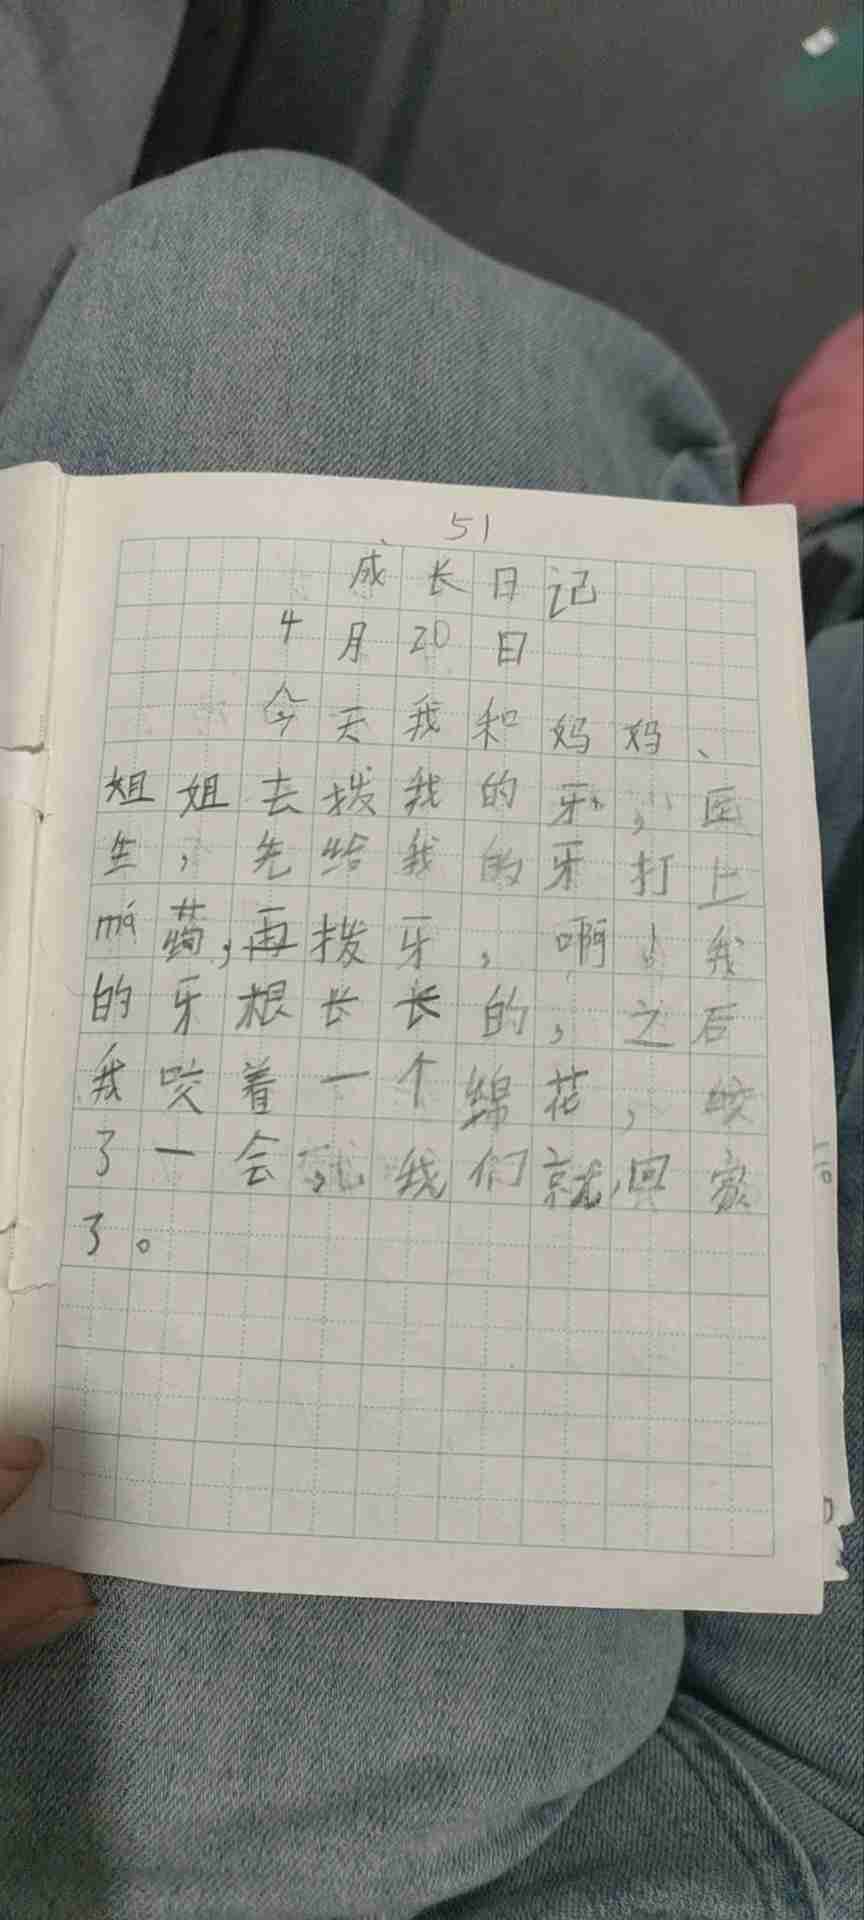 51
成长日记
4月20日
今天我和妈妈、
姐姐去拨我的牙，医
生，先给我的牙打上
má药，再拨牙，啊！我
的牙根长长的，之后
我咬着一个绵花，咬
了一会，我们就，回家
了。